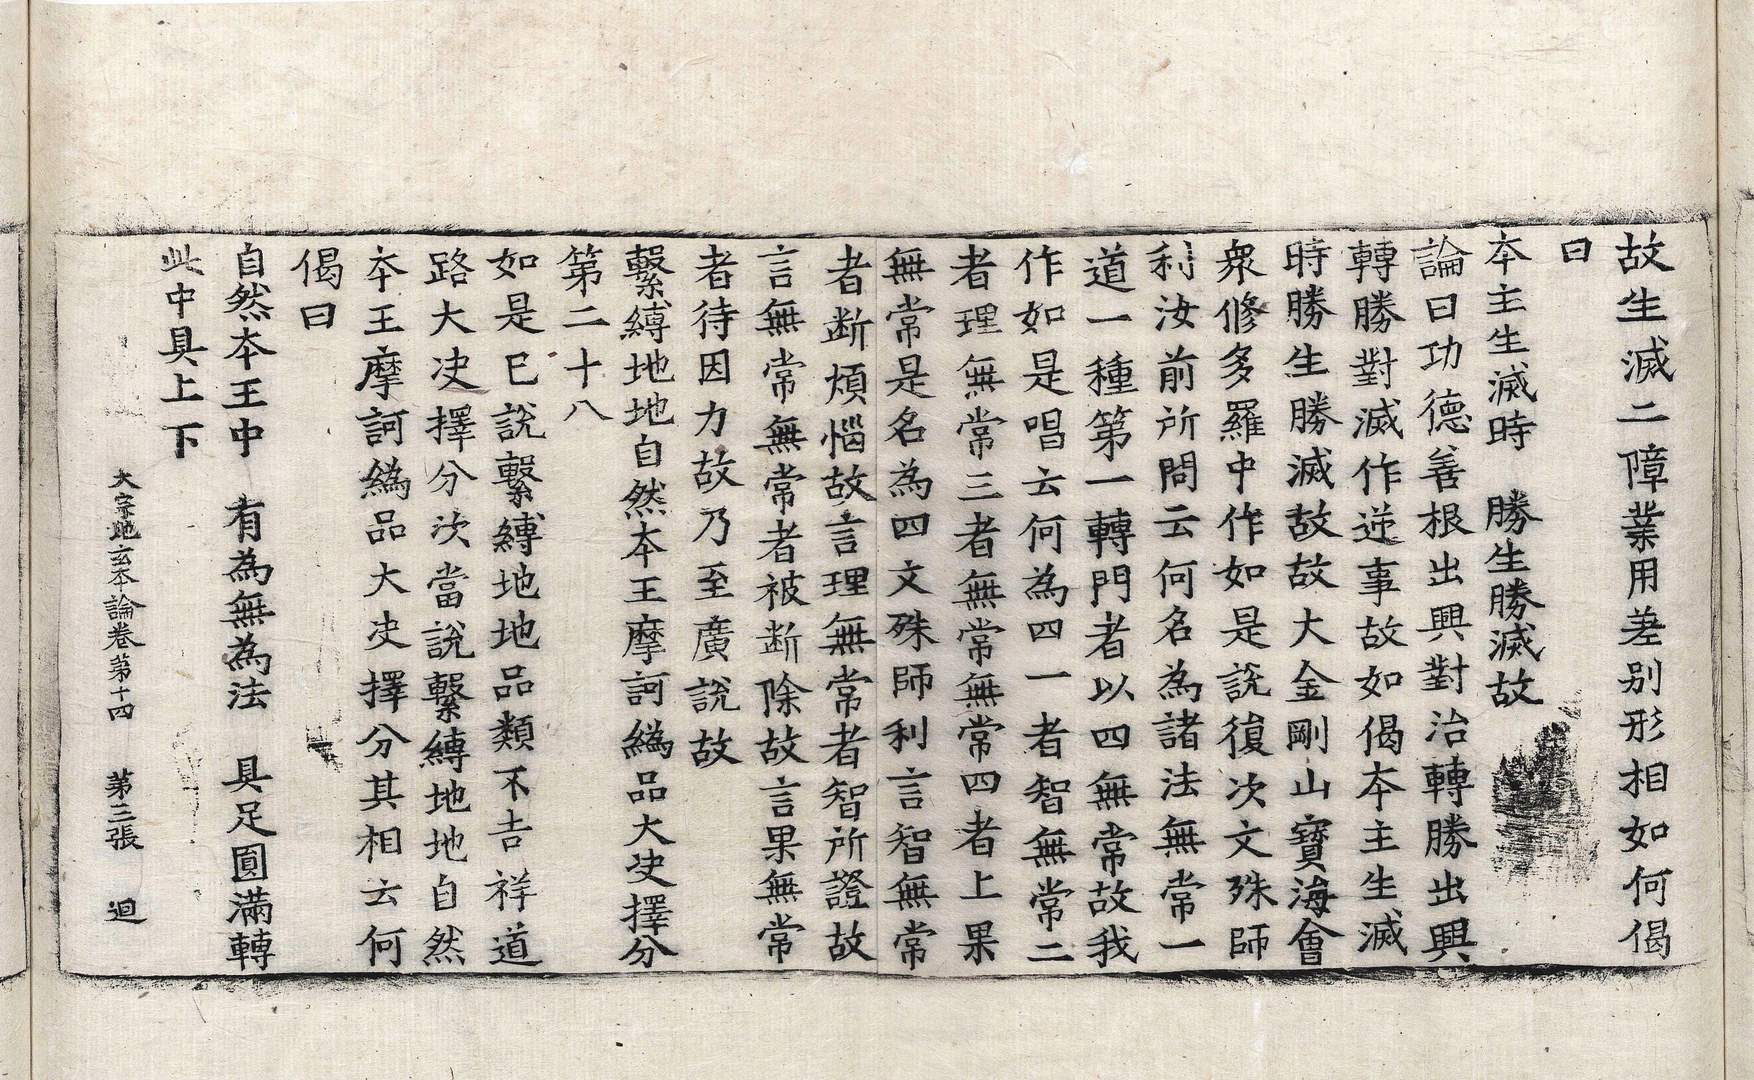 故生滅二障業用差别形相如何偈
曰
本主生滅時　勝生勝滅故
論曰功德善根出興對治轉勝出興
轉勝對滅作逆事故如偈本主生滅
時勝生勝滅故故大金剛山寶海會
衆修多羅中作如是說復次文殊師
利汝前所問云何名為諸法無常一
道一種第一轉門者以四無常故我
作如是唱云何為四一者智無常二
者理無常三者無常無常四者上果
無常是名為四文殊師利言智無常
者断煩惱故言理無常者智所證故
言無常無常者被断除故言果無常
者待因力故乃至廣說故
繫縛地地自然本王摩訶縛品大决擇分
第二十八
如是已說繫縛地地品類不吉祥道
路大决擇分次當說繫縛地地自然
本王摩訶縛品大决擇分其相云何
偈曰
自然本王中　有為無為法　具足圓滿轉
此中具上下
大宗地玄本論卷第十四　第三張　迴